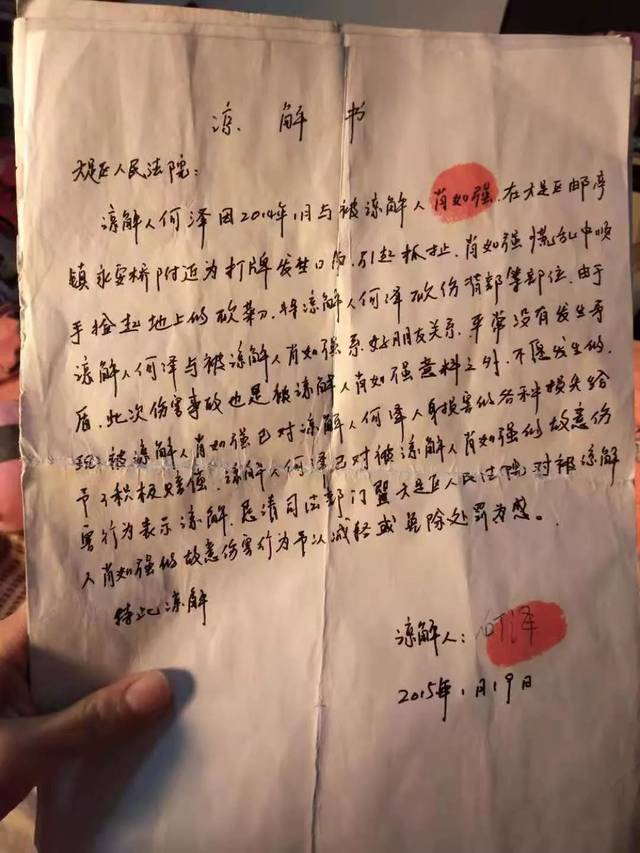 谅解书
大足区人民法院:
谅解人何泽因2014年1月与被谅解人肖如强,在大足区邮亭
镇永安桥附近为打牌发生口角,引起抓扯,肖如强慌乱中顺
手捡起地上的砍菜刀,将谅解人何泽砍伤背部等部位,由于
谅解人何泽与被谅解人肖如强系好朋友关系,平常没有发生矛
盾,此次伤害事故也是被谅解人肖如强意料之外,不愿发生的,
现被谅解人肖如强已对谅解人何泽人身损害的各种损失给
予了积极赔偿,谅解人何泽已对被谅解人肖如强的故意伤
害行为表示谅解,恳请司法部门暨大足区人民法院对被谅解
人肖如强的故意伤害行为予以减轻或免除处罚为感。
特此谅解
谅解人:何泽
2015年1月19日